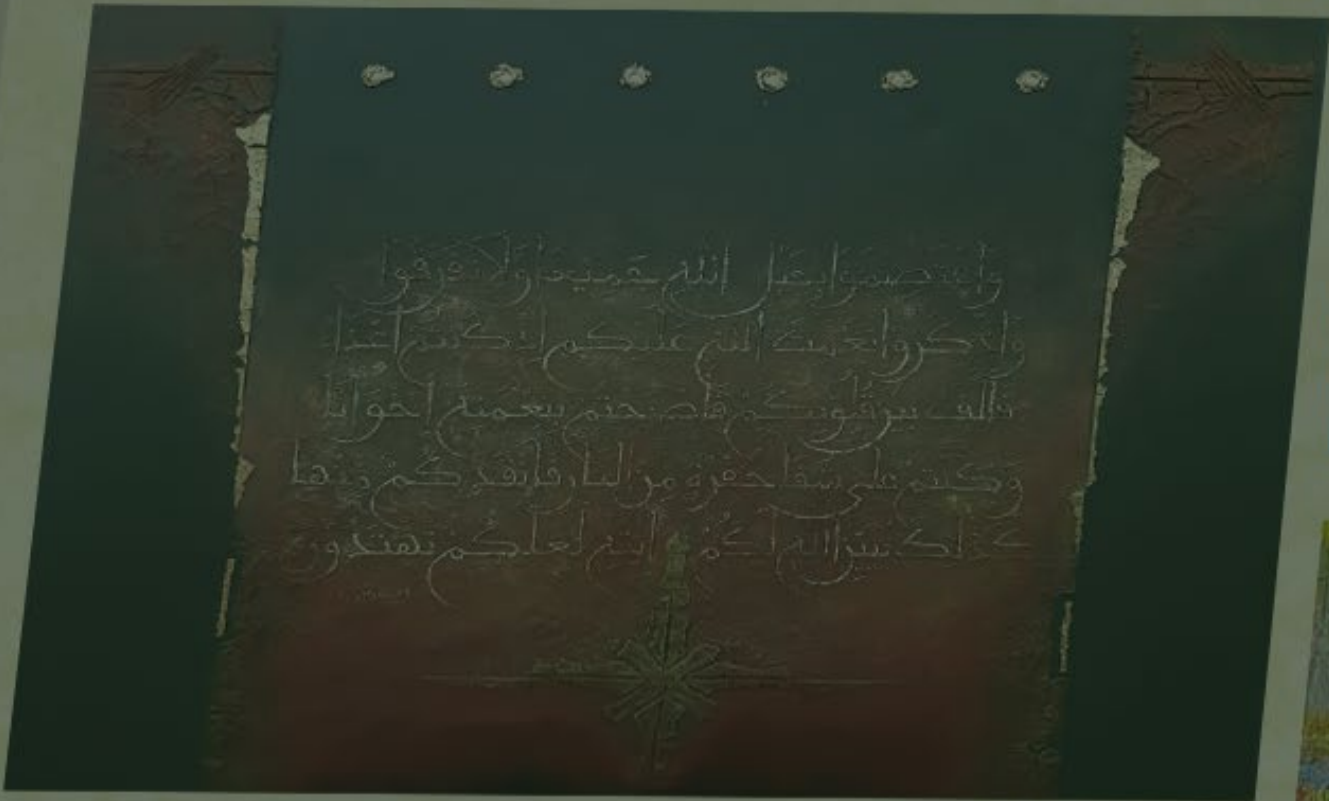 واعتصموا بحبل الله جميعا ولا تفرقوا
واذكروا نعمت الله عليكم إذ كنتم أعداء
فألف بين قلوبكم فأصبحتم بنعمته إخوانا
وكنتم على شفا حفرة من النار فأنقذكم منها
كذلك يبين الله لكم آيته لعلكم تهتدون